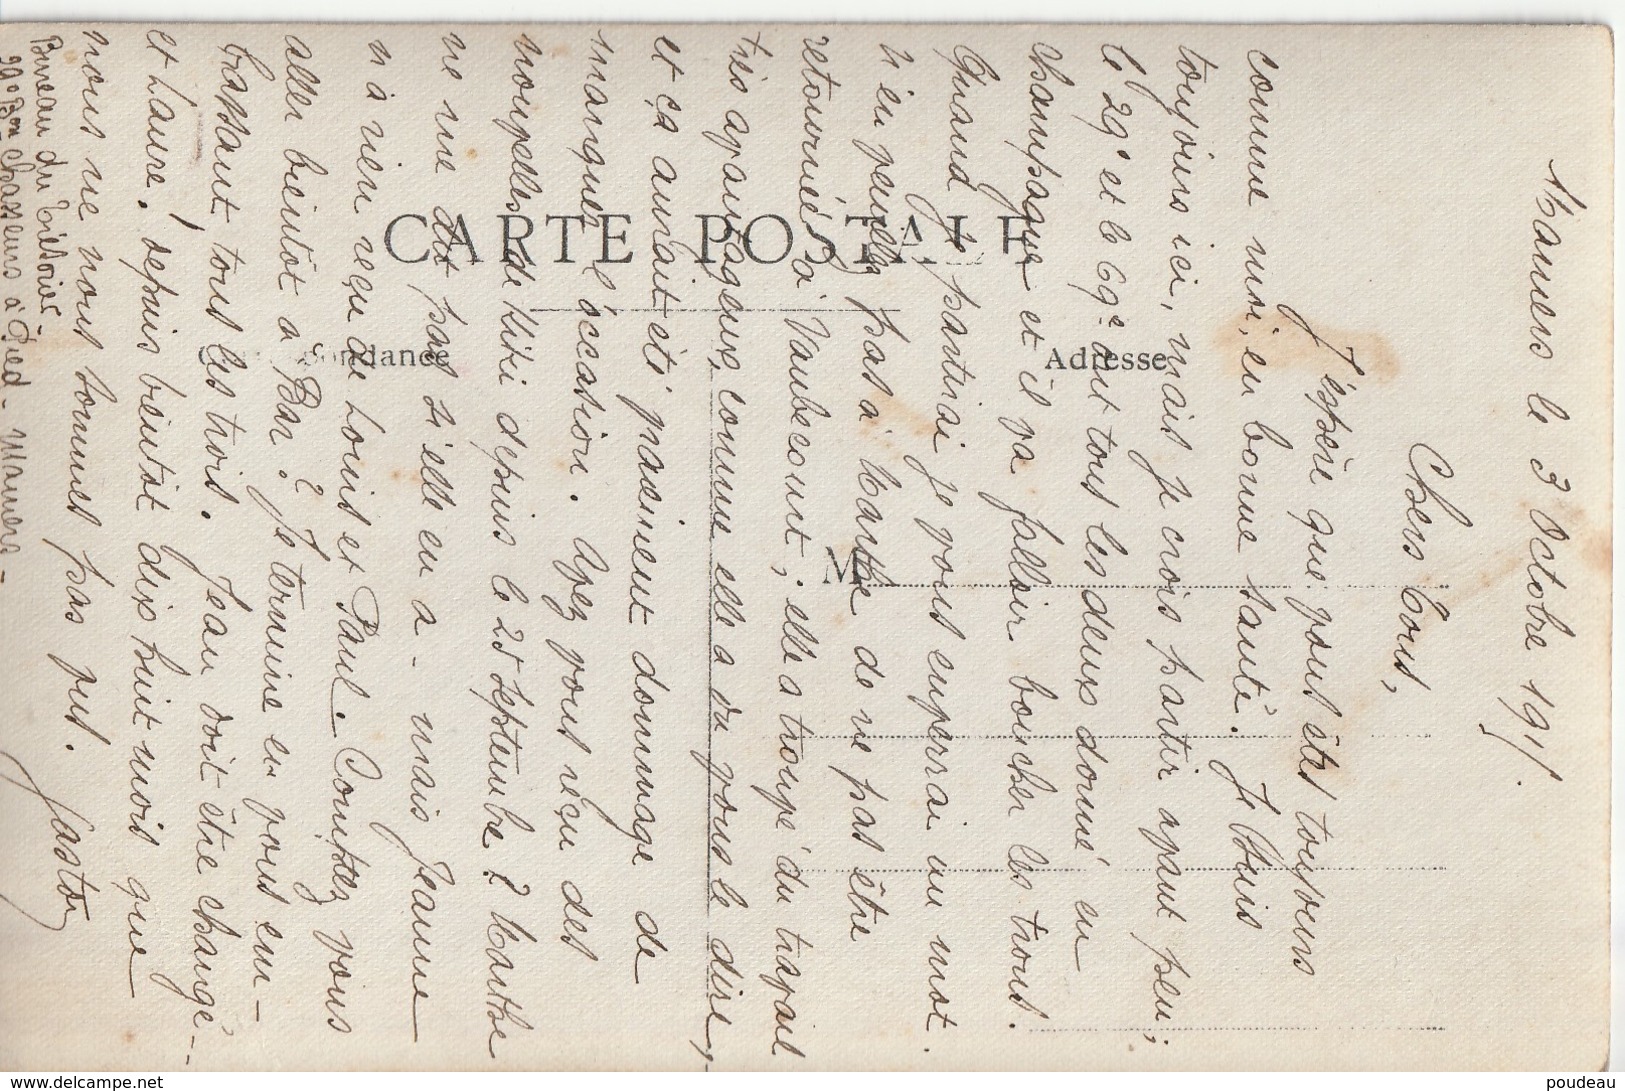 Mamers le 3 Octobre 191
Chers Tous,
J'espère que vous êtes toujours
comme moi, en bonne santé. Je suis
toujours ici, mais je crois partir avant peu;
le 29e et le 69e ont tous les deux donné en
champagne et il va falloir boucher les trous.
Quand je partirai je vous enverrai un mot.
N'en veuillez pas à Marthe de ne pas être
retournée à Vaubecourt; elle a trouvé du travail
très avantageux, comme elle a dû vous le dire,
et ça aurait été vraiment dommage de
manquer l'occasion. Avez vous reçu des
nouvelles de Kiki depuis le 25 septembre? Marthe
ne me dit pas si elle en a - mais Jeanne
n'a rien reçu de Louis et Paul. Comptez vous
aller bientôt à Bar? Je termine en vous em-
brassant tous les trois. Jean doit être changé -
et Laure! depuis bientôt dix huit mois que
nous ne nous sommes pas vus. Gaston
Bureau du Trésorier -
29e Bon Chasseurs à Pied - Mamers -
CARTE POSTALE
Correspondance
Adresse
M
www.delcampe.net
poudeau